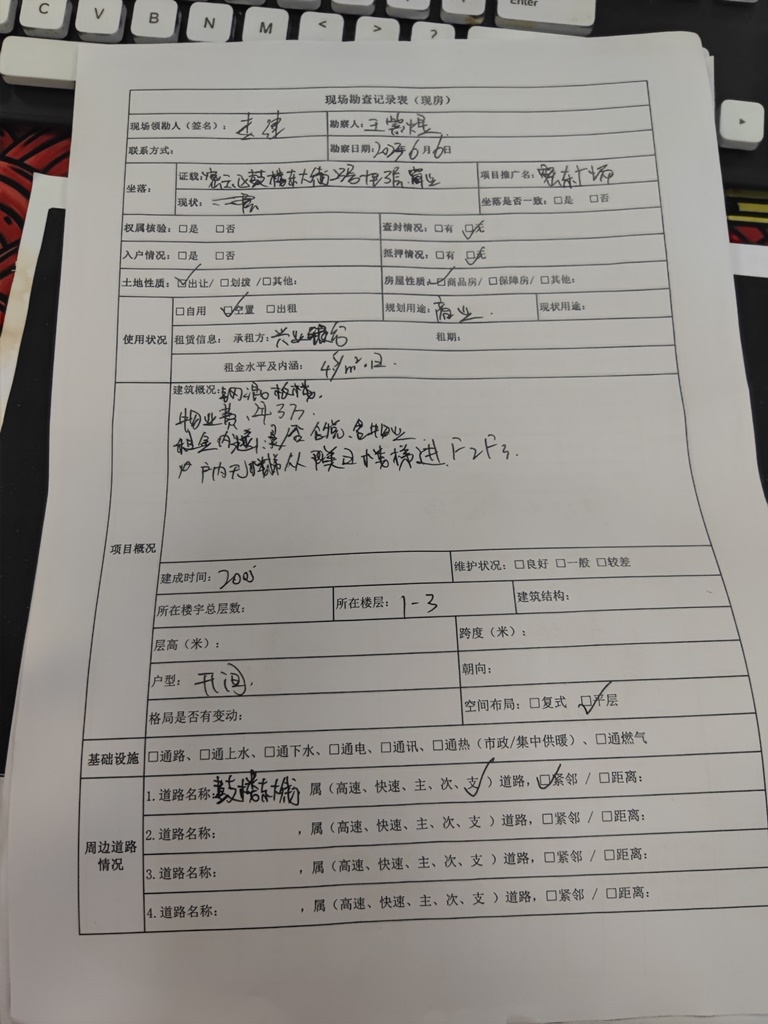 C V B N M < > ?
Enter
现场勘查记录表（现房）
现场领勘人（签名）： 勘察人：王
联系方式： 勘察日期：2024年6月6日
坐落： 证载：密云区鼓楼东大街 号 1至3层 商业 项目推广名：密东广场
现状： 坐落是否一致：□是 □否
权属核验：□是 □否 查封情况：□有 ☑无
入户情况：□是 □否 抵押情况：□有 ☑无
土地性质：☑出让/ □划拨 /□其他： 房屋性质：☑商品房/ □保障房/ □其他：
使用状况 □自用 ☑空置 □出租 规划用途：商业 现状用途：
租赁信息： 承租方：兴业银行 租期：
租金水平及内涵： 4元/m²·日
项目概况 建筑概况：钢混板楼
物业费、年3万.
租金内涵： 含税、含物业
户内无楼梯从 楼梯进 F2F3.
建成时间：2005 维护状况：□良好 □一般 □较差
所在楼宇总层数： 所在楼层：1-3 建筑结构：
层高（米）： 跨度（米）：
户型：开间. 朝向：
格局是否有变动： 空间布局：□复式 ☑平层
基础设施 □通路、□通上水、□通下水、□通电、□通讯、□通热（市政/集中供暖）、□通燃气
周边道路情况 1.道路名称：鼓楼东大街 属（高速、快速、主、次、支✓）道路，☑紧邻 / □距离：
2.道路名称： ，属（高速、快速、主、次、支 ）道路，□紧邻 / □距离：
3.道路名称： ，属（高速、快速、主、次、支 ）道路，□紧邻 / □距离：
4.道路名称： ，属（高速、快速、主、次、支 ）道路，□紧邻 / □距离：